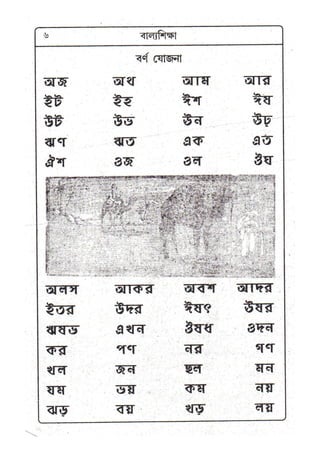 ৬ বাল্যশিক্ষা
বর্ণ যোজনা
অজ অথ আম আর
ইট ইহ ঈশ ঈষ
উট উড ঊন ঊঢ়
ঋণ ঋত এক এত
ঐশ ওজ ওল ঔঘ
অলস আকর অবশ আদর
ইতর উদর ঈষৎ ঊষর
ঋষভ এখন ঔষধ ওদন
কর পণ নর গণ
খল জন ছল মন
যম ভয় কম নয়
ঝড় বয় খড় লয়